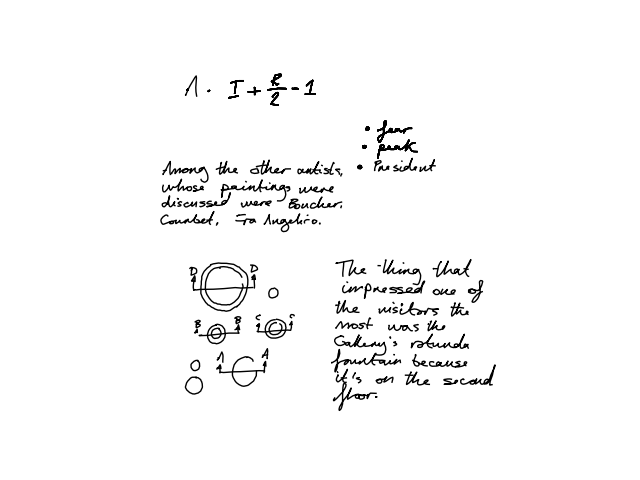 1. I + R/2 - 1
• fear
• peak
• President
Among the other artists,
whose paintings were
discussed were Boucher,
Courbet, Fra Angelico.
The thing that
impressed one of
the visitors the
most was the
Gallery's rotunda
fountain because
it's on the second
floor.
D D
B B C C
A A